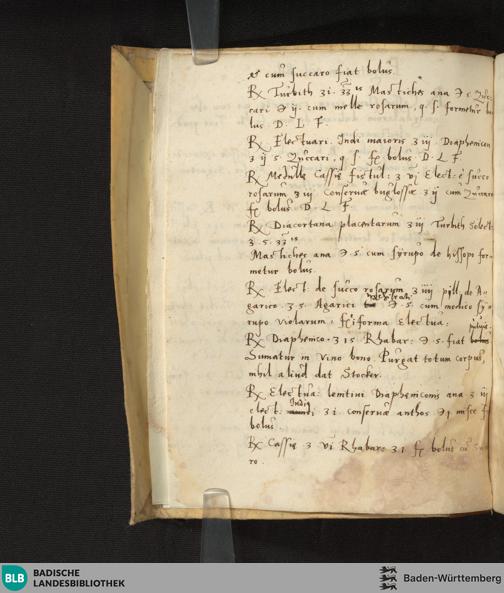 cum succaro fiat bolus
Rx Turbith ʒ i. Mastiches ana ℈ s
cari ℈ ij. cum melle rosarum, q. s. formetur
lus. D. L. F.
Rx Electuari. Indi maioris ʒ iij Diaphenicon
ʒ ij s Zuccari, q. s fc bolus D. L. F.
Rx Medulle Cassie fistul: ʒ vj Elect: e succo
rosarum ʒ iij Conserve buglossae ʒ ij cum Zuccaro
fc bolus D L F
Rx Diacortana placentarum ʒ iij Turbith
ʒ. s.
Mastiches ana ℈ s cum syrupo de hyssopo for
metur bolus.
Rx Elect: de succo rosarum ʒ iiij pill de A
garico ʒ s Agarici ℈ s. cum modico sy
rupo violarum, forma Electua:
Rx Diaphenico: ʒ i s Rhabar: ℈ s. fiat
Sumatur in vino bono. Purgat totum corpus,
nihil aliud dat Stocker.
Rx Electua: lenitivi Diaphenicons ana ʒ ij
elect: Indi ʒ i conserve anthos ℈ j misce
bolus
Rx Cassie ʒ vi Rhabar: ʒ i fc bolus
ro.
BLB
BADISCHE
LANDESBIBLIOTHEK
Baden-Württemberg